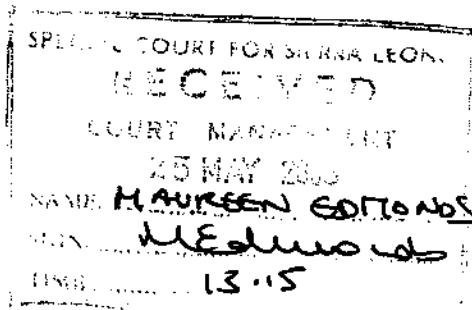 SPECIAL COURT FOR SIERRA LEONE
RECEIVED
COURT MANAGEMENT
25 MAY
NAME MAUREEN EDMONDS
SIGN MEdmonds
TIME 13.15